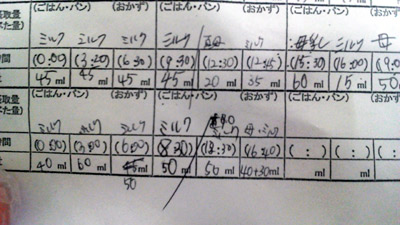 取量 (ごはん・パン) (おかず) (ごはん・パン) (おかず) (ごはん・パン) (おかず)
た量)
ミルク ミルク ミルク ミルク ミルク 母乳 ミルク 母
間 (0:00) (3:00) (6:30) (9:30) (12:30) (12:45) (15:30) (16:00) (9:0
45 ml 45 ml 45 ml 45 ml 20 ml 35 ml 60 ml 15 ml 50
取量 (ごはん・パン) (おかず) (ごはん・パン) (おかず) (ごはん・パン) (おかず)
た量)
ミルク ミルク ミルク ミルク ミルク 母・ミルク
間 (0:00) (3:00) (6:00) (13:30) (16:40) ( : ) ( : ) ( :
40 ml 60 ml ml 50 ml 50 ml 40+30 ml ml ml
50